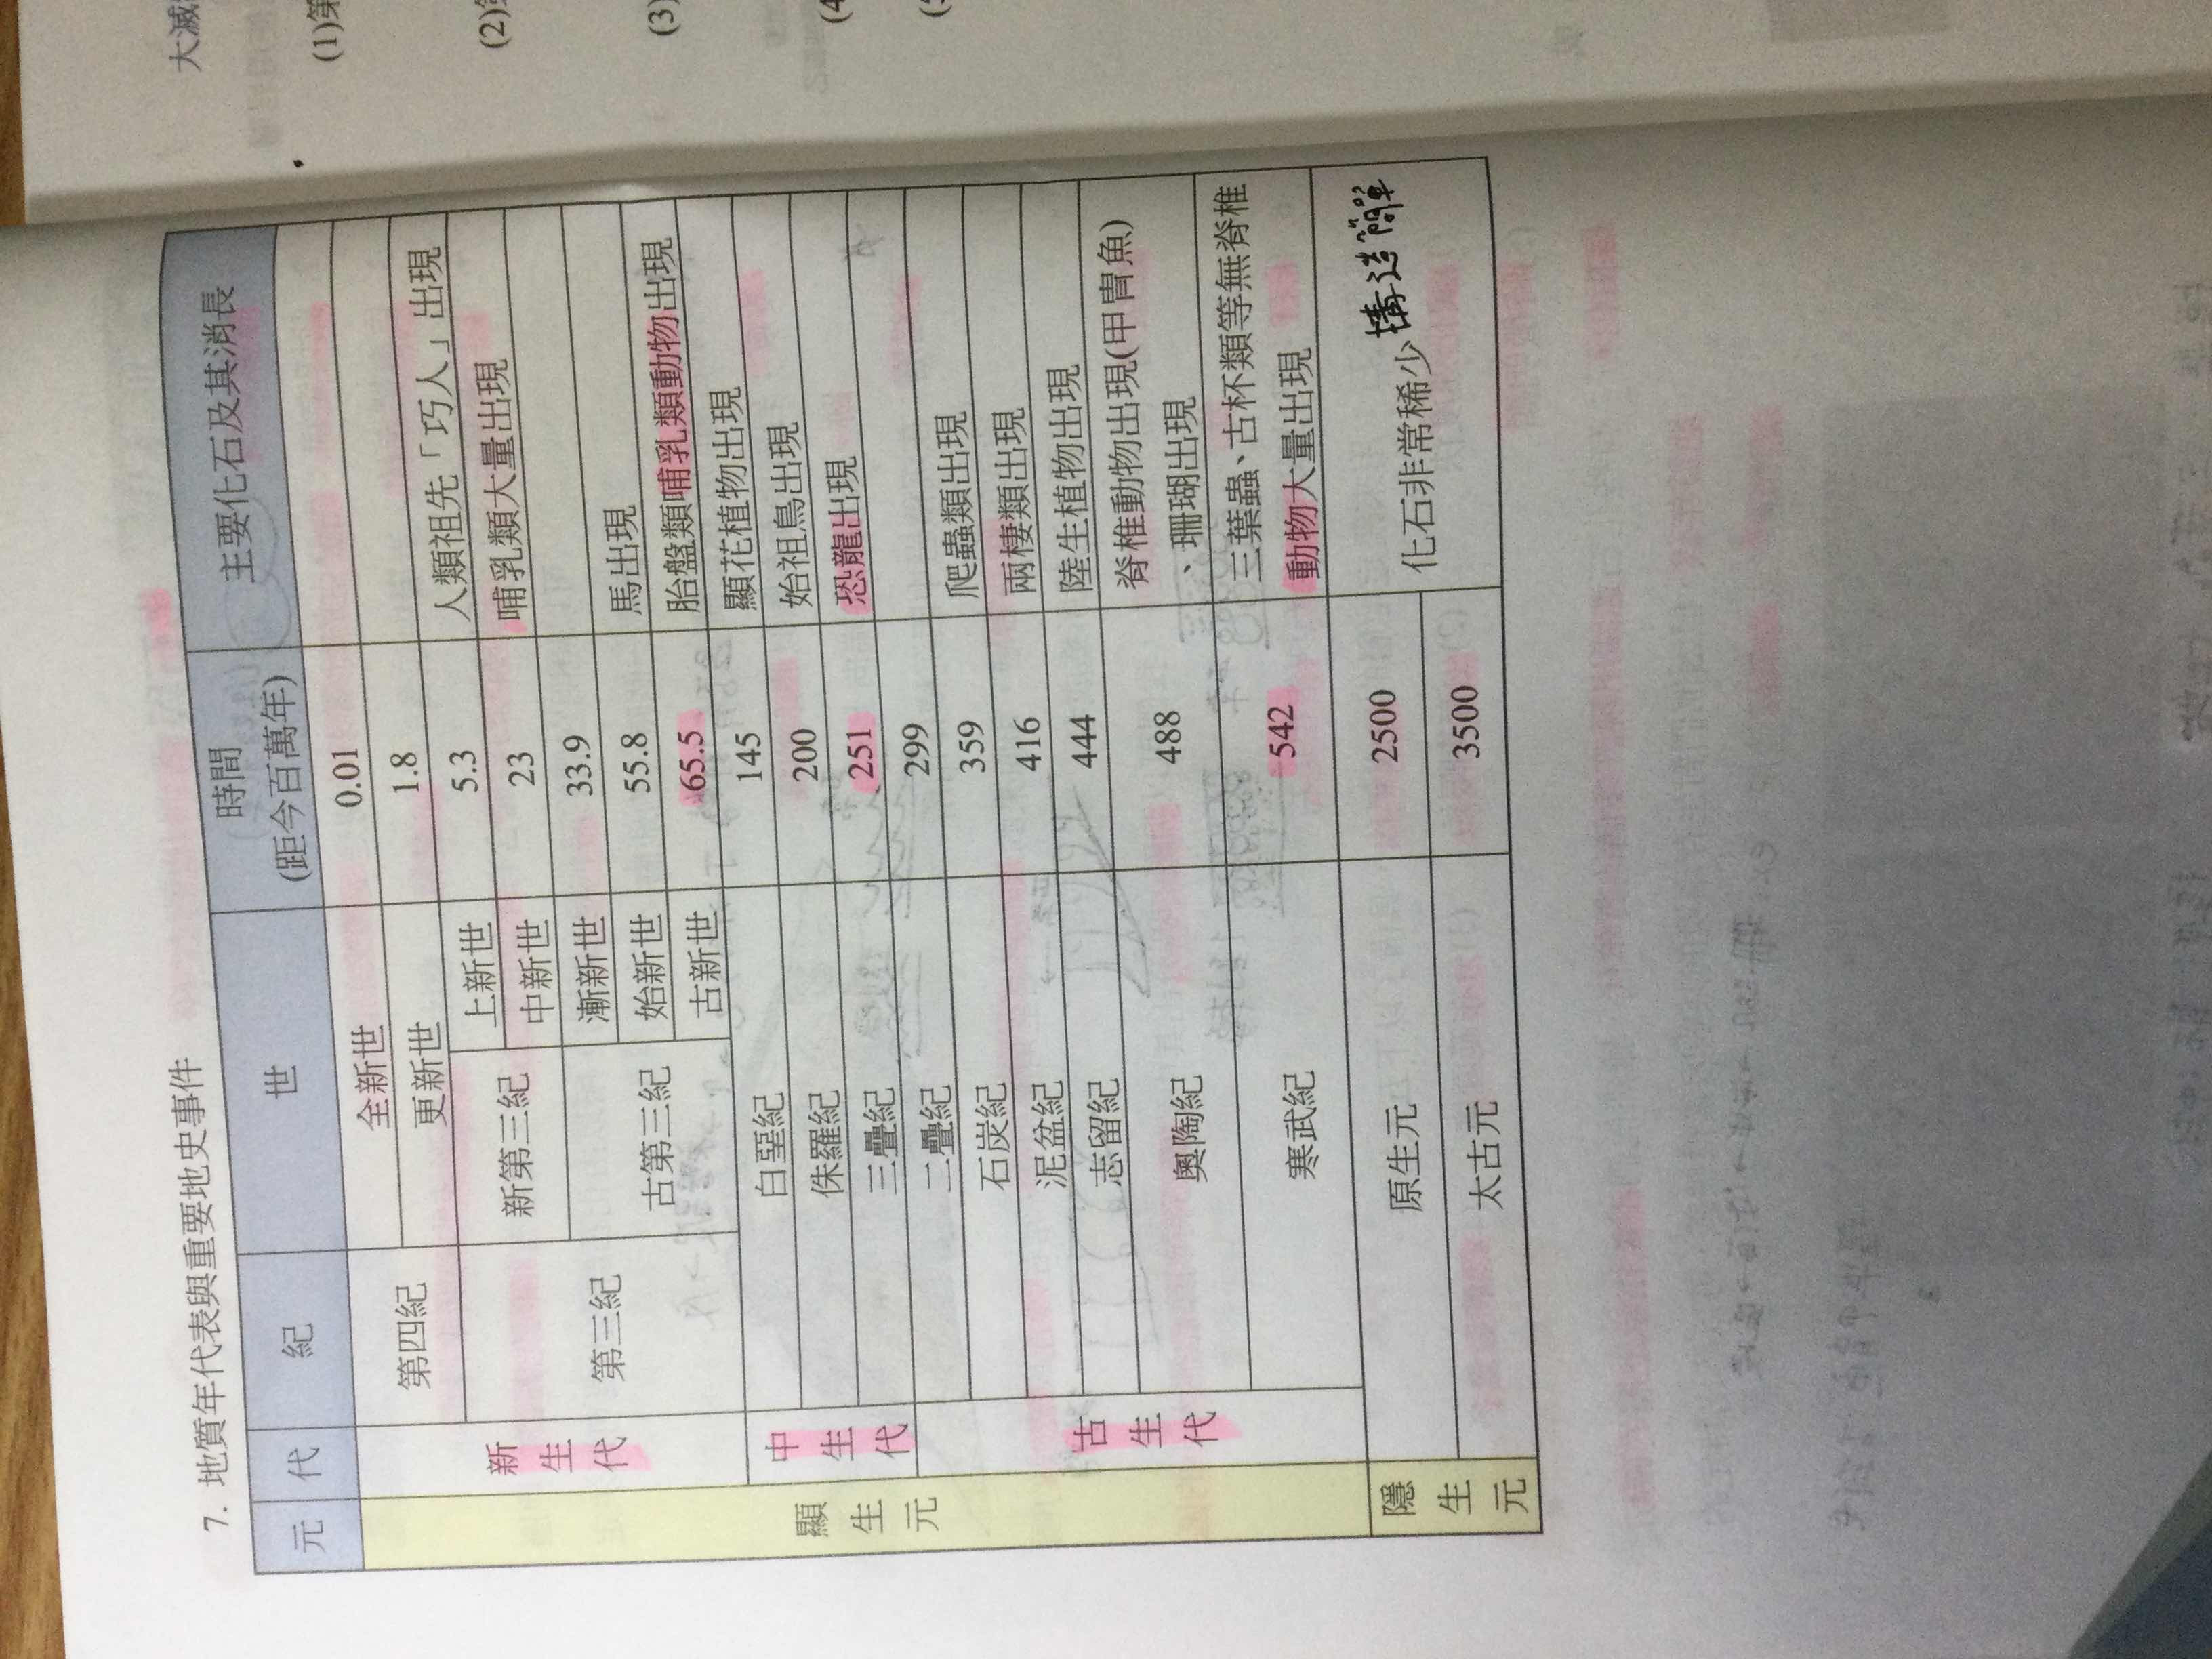 7. 地質年代表與重要地史事件
元 代 紀 世 時間 主要化石及其消長
(距今百萬年)
顯生元 新生代 第四紀 全新世 0.01
更新世 1.8
第三紀 新第三紀 上新世 5.3 人類祖先「巧人」出現
中新世 23 哺乳類大量出現
古第三紀 漸新世 33.9
始新世 55.8 馬出現
古新世 65.5 胎盤類哺乳類動物出現
中生代 白堊紀 145 顯花植物出現
侏羅紀 200 始祖鳥出現
三疊紀 251 恐龍出現
古生代 二疊紀 299
石炭紀 359 爬蟲類出現
泥盆紀 416 兩棲類出現
志留紀 444 陸生植物出現
奧陶紀 488 脊椎動物出現(甲冑魚)
、珊瑚出現
寒武紀 542 三葉蟲、古杯類等無脊椎
動物大量出現
隱生元 原生元 2500 化石非常稀少 構造簡單
太古元 3500
大滅
(1)第
(2)
(3)
(4